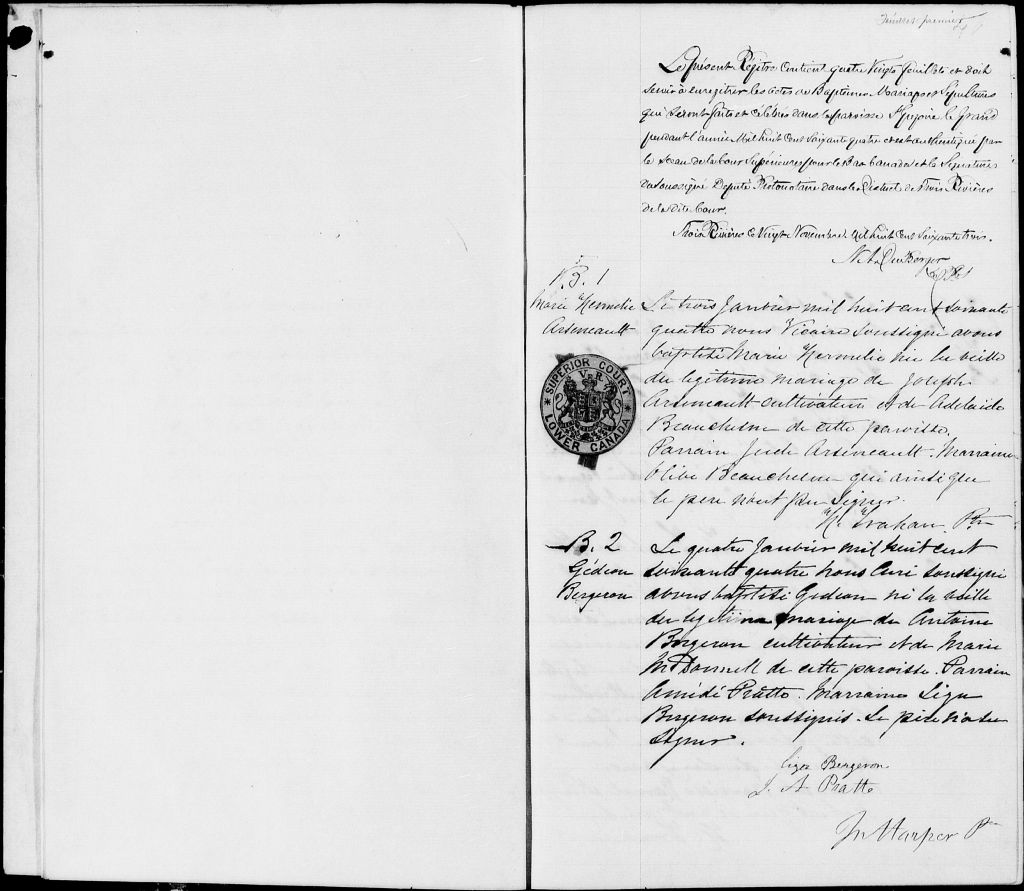 Feuillet premier
Le présent Régitre contient quatre Vingts feuillets et doit
servir à enregitrer les actes de Baptemes Mariages et Sépultures
qui seront faits et célébrés dans la paroisse St Grégoire le Grand
pendant l'année Mil huit Cent Soixante quatre et est authentiqué par
le Sceau de la Cour Supérieure pour le Bas Canada et la Signature
du Soussigné Député Protonotaire dans le District de Trois Rivières
de la dite Cour.
Trois Rivières ce Vingt Novembre Mil huit Cent Soixante trois.
B. 1
Marie Hermelie
Arseneault
Le trois Janvier mil huit cent soixante
quatre nous Vicaire soussigné avons
baptisé Marie Hermelie née la veille
du legitime mariage de Joseph
Arseneault cultivateur et de Adelaide
Beauchesne de cette paroisse.
Parrain Jude Arseneault. Marraine
Olive Beauchesne qui ainsi que
le pere n'ont pu signer.
H. Trahan Ptre
SUPERIOR COURT
V R
LOWER CANADA
B. 2
Gédéon
Bergeron
Le quatre Janvier mil huit cent
soixante quatre nous Curé soussigné
avons baptisé Gedeon né la veille
du legitime mariage de Antoine
Bergeron cultivateur et de Marie
McDonnell de cette paroisse. Parrain
Amédé Pratte. Marraine Ligea
Bergeron soussignés. Le père n'a su
signer.
Ligea Bergeron
J. A. Pratte
J Harper Ptre